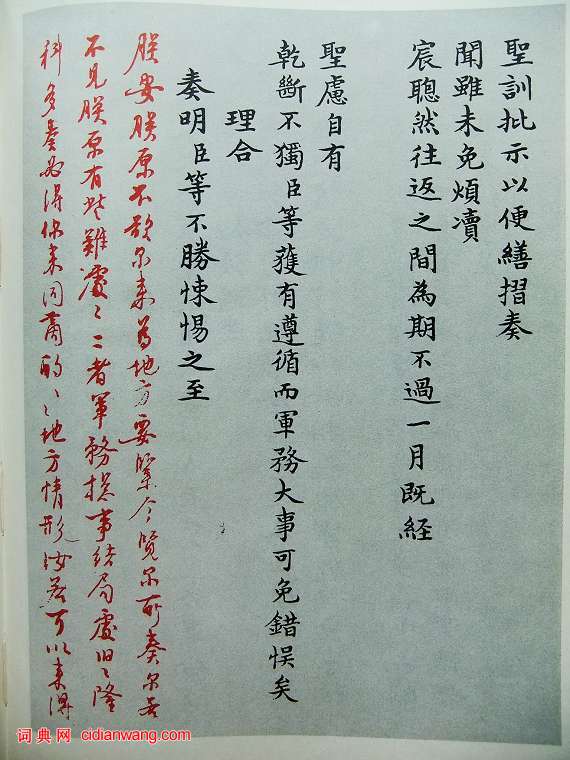 聖訓批示以便繕摺奏
聞雖未免煩瀆
宸聰然往返之間為期不過一月既經
聖慮自有
乾斷不獨臣等獲有遵循而軍務大事可免錯悮矣
理合
奏明臣等不勝悚惕之至
朕安朕原不欲尔來為地方要緊今覽尔所奏尔若
不見朕原有些難處〻〻者軍務總事結局處旧〻隆
科多奏必得你來同商酌〻〻地方情形汝若可以來得
词典网 cidianwang.com